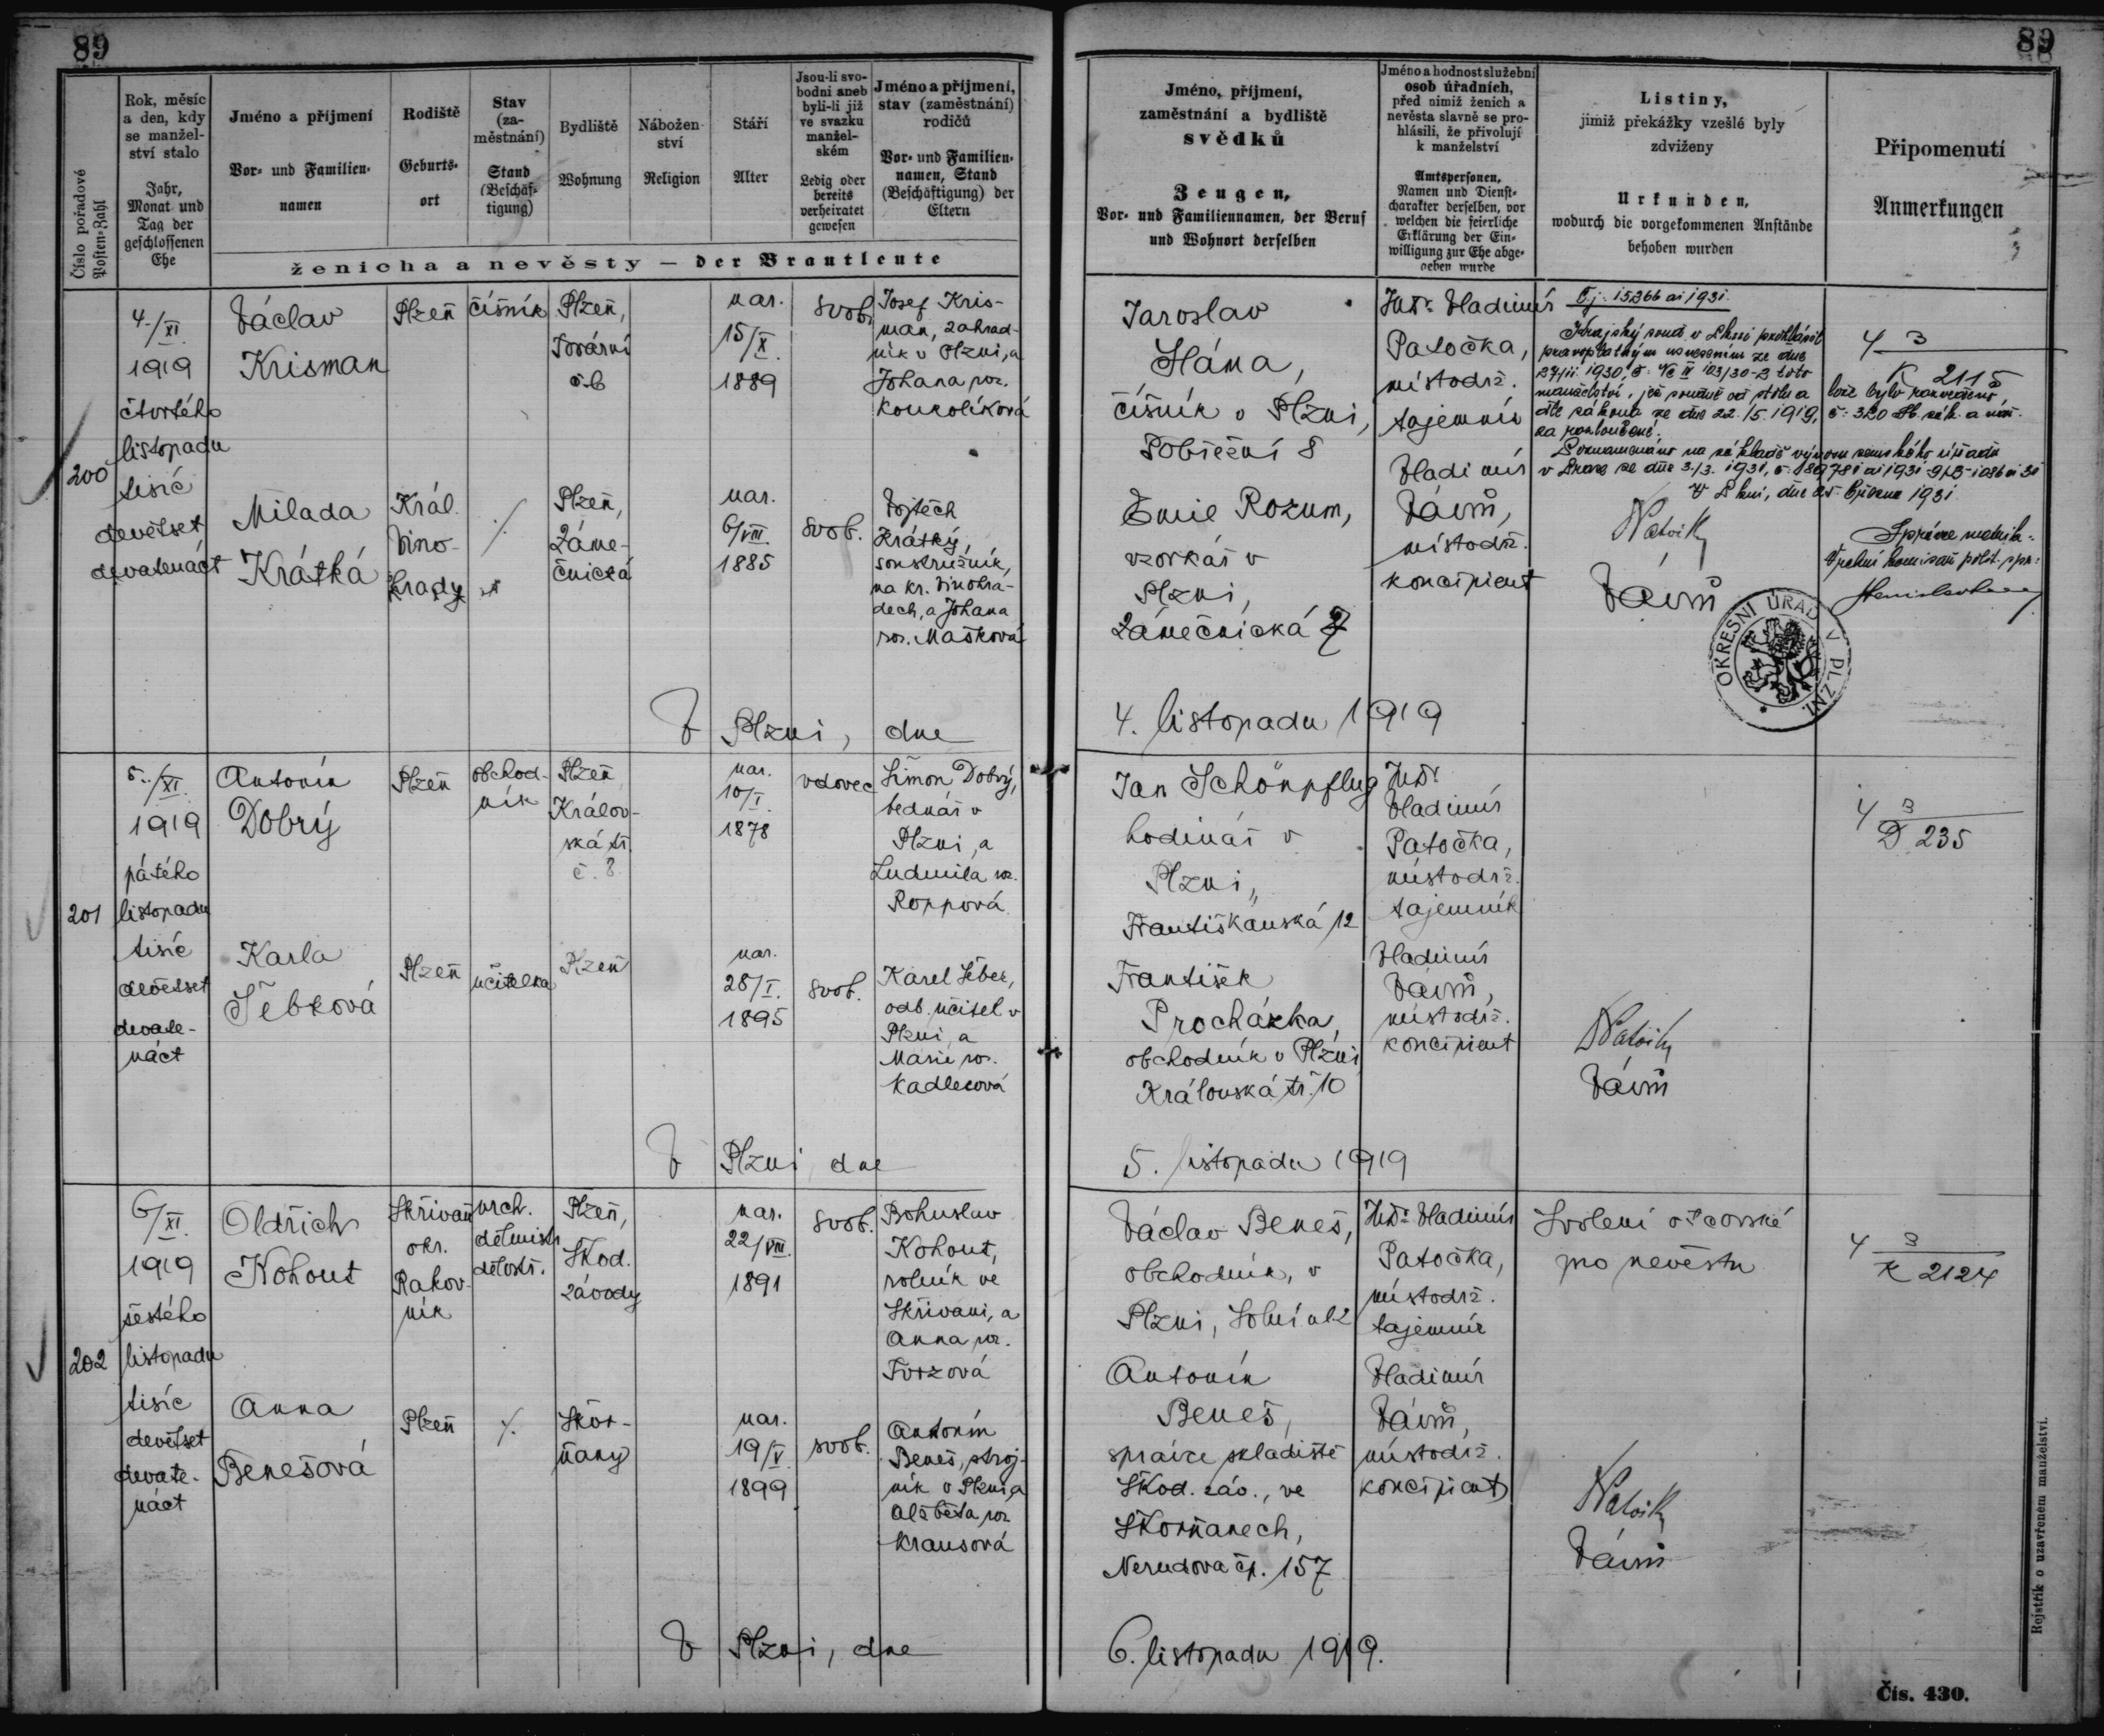 89
89
Číslo pořadové
Posten-Zahl
Rok, měsíc
a den, kdy
se manžel-
ství stalo
Jahr,
Monat und
Tag der
geschlossenen
Ehe
Jméno a příjmení
Vor- und Familien-
namen
Rodiště
Geburts-
ort
Stav
(za-
městnání)
Stand
(Beschäf-
tigung)
Bydliště
Wohnung
Nábožen-
ství
Religion
Stáří
Alter
Jsou-li svo-
bodni aneb
byli-li již
ve svazku
manžel-
ském
Ledig oder
bereits
verheiratet
gewesen
Jméno a příjmení,
stav (zaměstnání)
rodičů
Vor- und Familien-
namen, Stand
(Beschäftigung) der
Eltern
ženicha a nevěsty — der Brautleute
Jméno, příjmení,
zaměstnání a bydliště
svědků
Zeugen,
Vor- und Familiennamen, der Beruf
und Wohnort derselben
Jméno a hodnost služební
osob úřadních,
před nimiž ženich a
nevěsta slavně se pro-
hlásili, že přivolují
k manželství
Amtspersonen,
Namen und Dienst-
charakter derselben, vor
welchen die feierliche
Erklärung der Ein-
willigung zur Ehe abge-
geben wurde
Listiny,
jimiž překážky vzešlé byly
zdviženy
Urkunden,
wodurch die vorgekommenen Anstände
behoben wurden
Připomenutí
Anmerkungen
200
4./XI.
1919
čtvrtého
listopadu
tisíc
devětset
devatenáct
Václav
Krisman
Plzeň
číšník
Plzeň,
Tovární
č. 6
nar.
15/X.
1889
svob.
Josef Kris-
man, zahrad-
ník v Plzni, a
Johana roz.
Koukolíková
Milada
Krátká
Král.
Vino-
hrady
Plzeň,
Záme-
čnická
nar.
6/VIII.
1885
svob.
Vojtěch
Krátký,
soustružník,
na Kr. Vinohra-
dech, a Johana
roz. Mašková
Jaroslav
Háma,
číšník v Plzni,
Pobřežní 8
Emil Rozum,
vzorkář v
Plzni,
Zámečnická 7
JUDr. Vladimír
Patočka,
místodrž.
tajemník
Vladimír
Vávrů,
místodrž.
koncipient
Čj. 15.366 ai 1931.
Krajský soud v Plzni prohlásil
pravoplatným usnesením ze dne
manželství, jež soudně od stolu a lože bylo rozvedeno,
dle zákona ze dne 22./5. 1919, č. 320 Sb. zák. a nař.
za rozloučené.
Poznamenáno na základě výnosu zemského úřadu
v Praze ze dne 3./3. 1931,
V Plzni, dne 25. března 1931.
Správce matrik:
Vávrů
OKRESNÍ ÚŘAD V PLZNI.
4 3
K 2115
V Plzni, dne 4. listopadu 1919
201
5./XI.
1919
pátého
listopadu
tisíc
devětset
devate-
náct
Antonín
Dobrý
Plzeň
obchod-
ník
Plzeň
Králov-
ská tř.
č. 8
nar.
10/I.
1878
vdovec
Šimon Dobrý,
bednář v
Plzni, a
Ludmila roz.
Roppová
Karla
Šebková
Plzeň
učitelka
Plzeň
nar.
28/I.
1895
svob.
Karel Šebek,
odb. učitel v
Plzni, a
Marie roz.
Kadlecová
Jan Schönpflug
hodinář v
Plzni,
Františkánská 12
František
Procházka,
obchodník v Plzni
Královská tř. 10
JUDr.
Vladimír
Patočka,
místodrž.
tajemník
Vladimír
Vávrů,
místodrž.
koncipient
Vávrů
4 3
D 235
V Plzni dne 5. listopadu 1919
202
6/XI.
1919
šestého
listopadu
tisíc
devětset
devate-
náct
Oldřich
Kohout
Skřivaň
okr.
Rakov-
ník
Plzeň,
Škod.
závody
nar.
22/VIII.
1891
svob.
Bohuslav
Kohout,
rolník ve
Skřivani, a
Anna roz.
Tvrzová
Anna
Benešová
Plzeň
Skvr-
ňany
nar.
19/V.
1899
svob.
Antonín
Beneš, stroj-
ník v Plzni, a
Alžběta roz.
Krausová
Václav Beneš,
obchodník, v
Plzni, Solní ul. 2
Antonín
Beneš,
správce skladiště
Škod. záv., ve
Skvrňanech,
Nerudova čp. 157
JUDr. Vladimír
Patočka,
místodrž.
tajemník
Vladimír
Vávrů,
místodrž.
koncipient
Svolení otcovské
pro nevěstu
Vávrů
4 3
K 2124
V Plzni, dne 6. listopadu 1919.
Rejstřík o uzavřeném manželství.
Čís. 430.